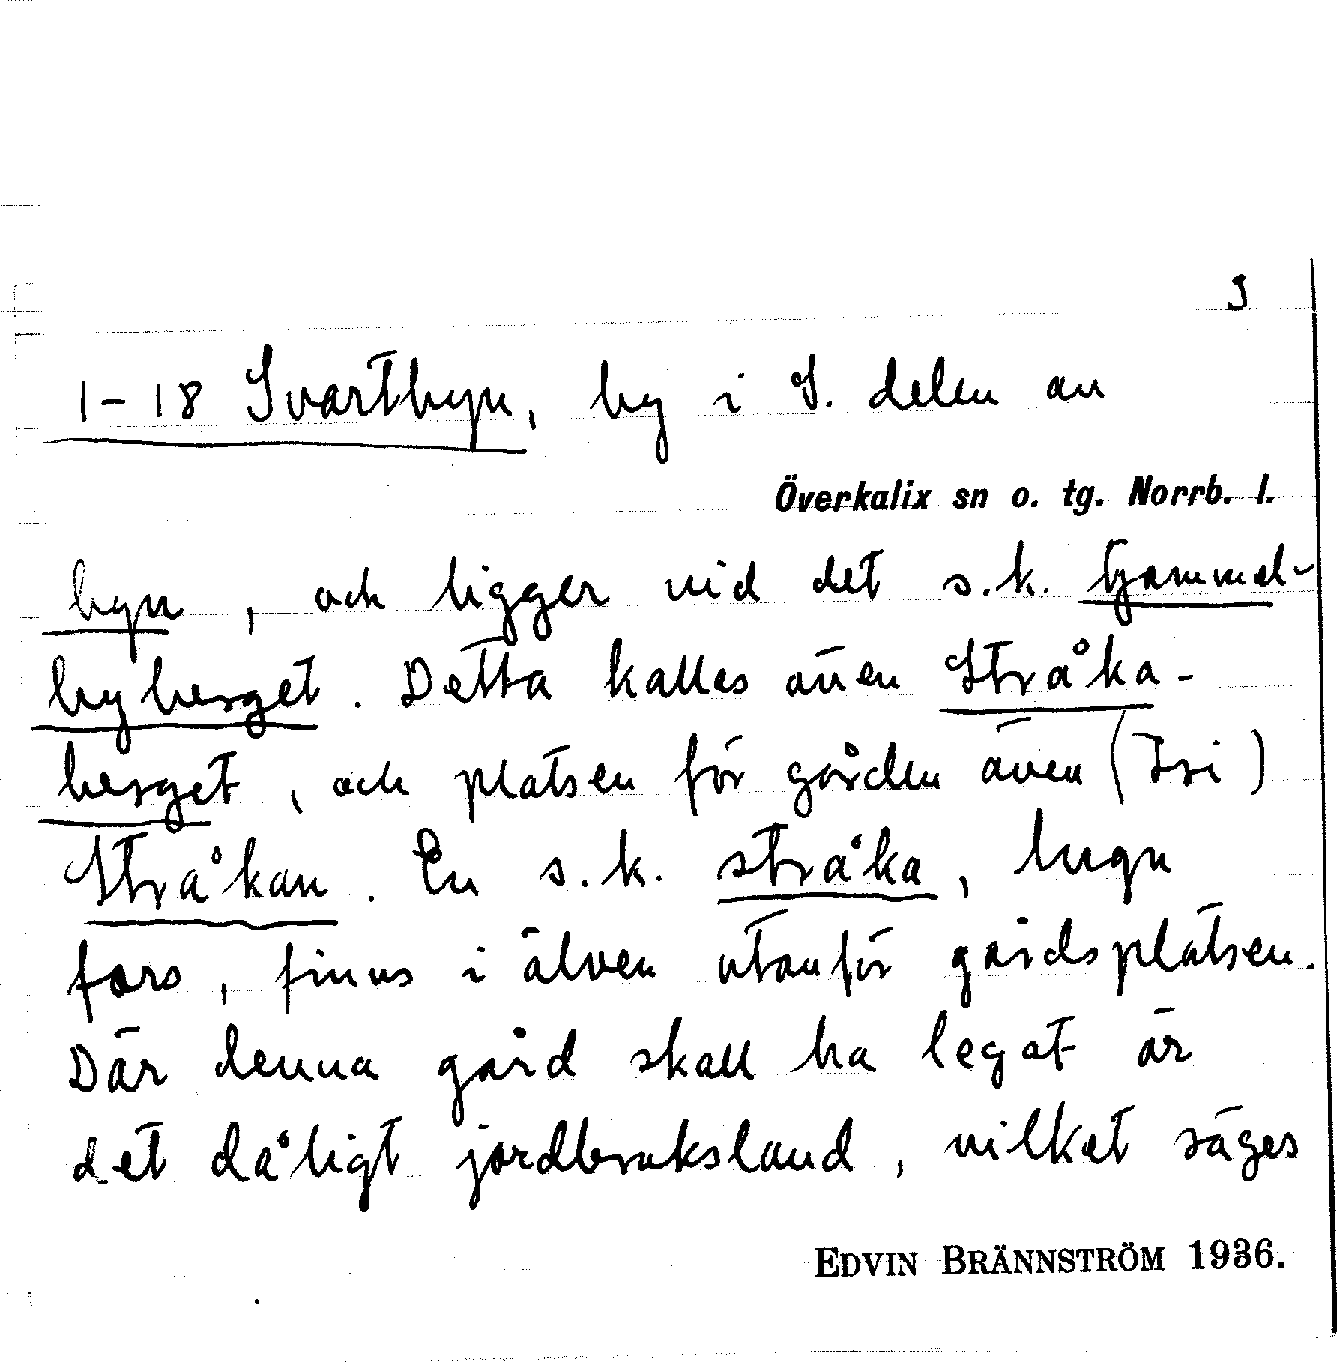 3
1-18 Svartbyn, by i S. delen av
Överkalix sn o. tg. Norrb. l.
byn, och ligger vid det s.k. Gammel-
byberget. Detta kallas även Stråka-
berget, och platsen för gården även (Isi)
Stråkan. En s.k. stråka, lugn
fors, finns i älven utanför gårdsplatsen.
Där denna gård skall ha legat är
det dåligt jordbruksland, vilket säges
EDVIN BRÄNNSTRÖM 1936.